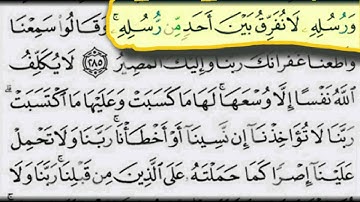 وَرُسُلِهِ لَا نُفَرِّقُ بَيْنَ أَحَدٍ مِّن رُّسُلِهِ ۚ وَقَالُوا سَمِعْنَا
وَأَطَعْنَا غُفْرَانَكَ رَبَّنَا وَإِلَيْكَ الْمَصِيرُ ﴿٢٨٥﴾ لَا يُكَلِّفُ
اللَّهُ نَفْسًا إِلَّا وُسْعَهَا لَهَا مَا كَسَبَتْ وَعَلَيْهَا مَا اكْتَسَبَتْ ۗ
رَبَّنَا لَا تُؤَاخِذْنَا إِن نَّسِينَا أَوْ أَخْطَأْنَا ۚ رَبَّنَا وَلَا تَحْمِلْ
عَلَيْنَا إِصْرًا كَمَا حَمَلْتَهُ عَلَى الَّذِينَ مِن قَبْلِنَا ۚ رَبَّنَا وَلَا